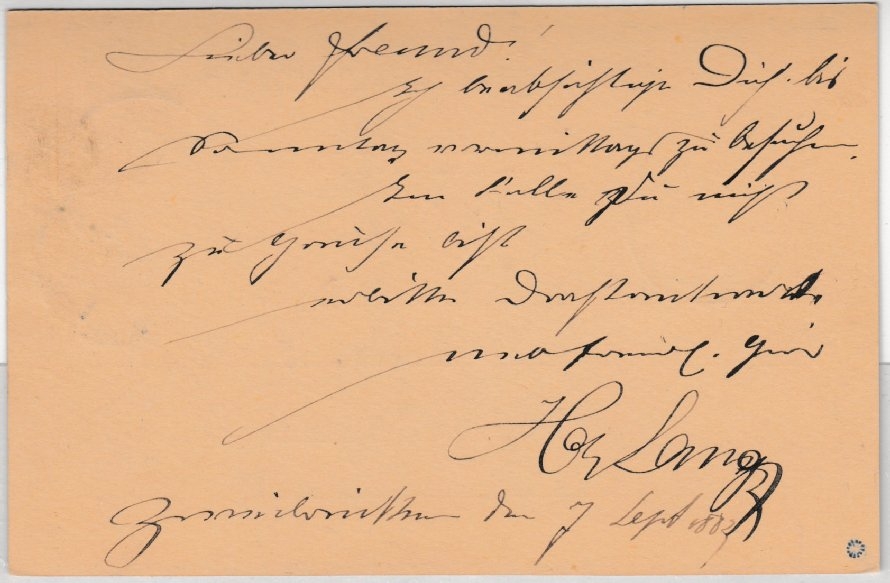 Lieber Freund!
Ich beabsichtige Dich bis
Sonntag vormittags zu besuchen.
Im Falle Du nicht
zu Hause bist
erbitte Drahtantwort.
freundl.
Hch Lang
Zweibrücken den 7 Sept 1882